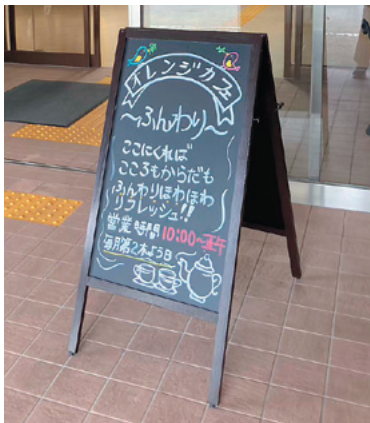 オレンジカフェ
～ふんわり～
ここにくれば
こころもからだも
ふんわりほわほわ
リフレッシュ!!
営業時間 10:00～正午
毎月第2木よう日